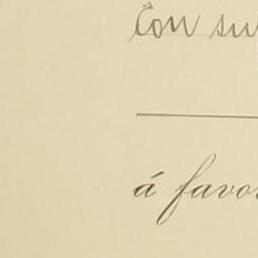 Con su
á favo